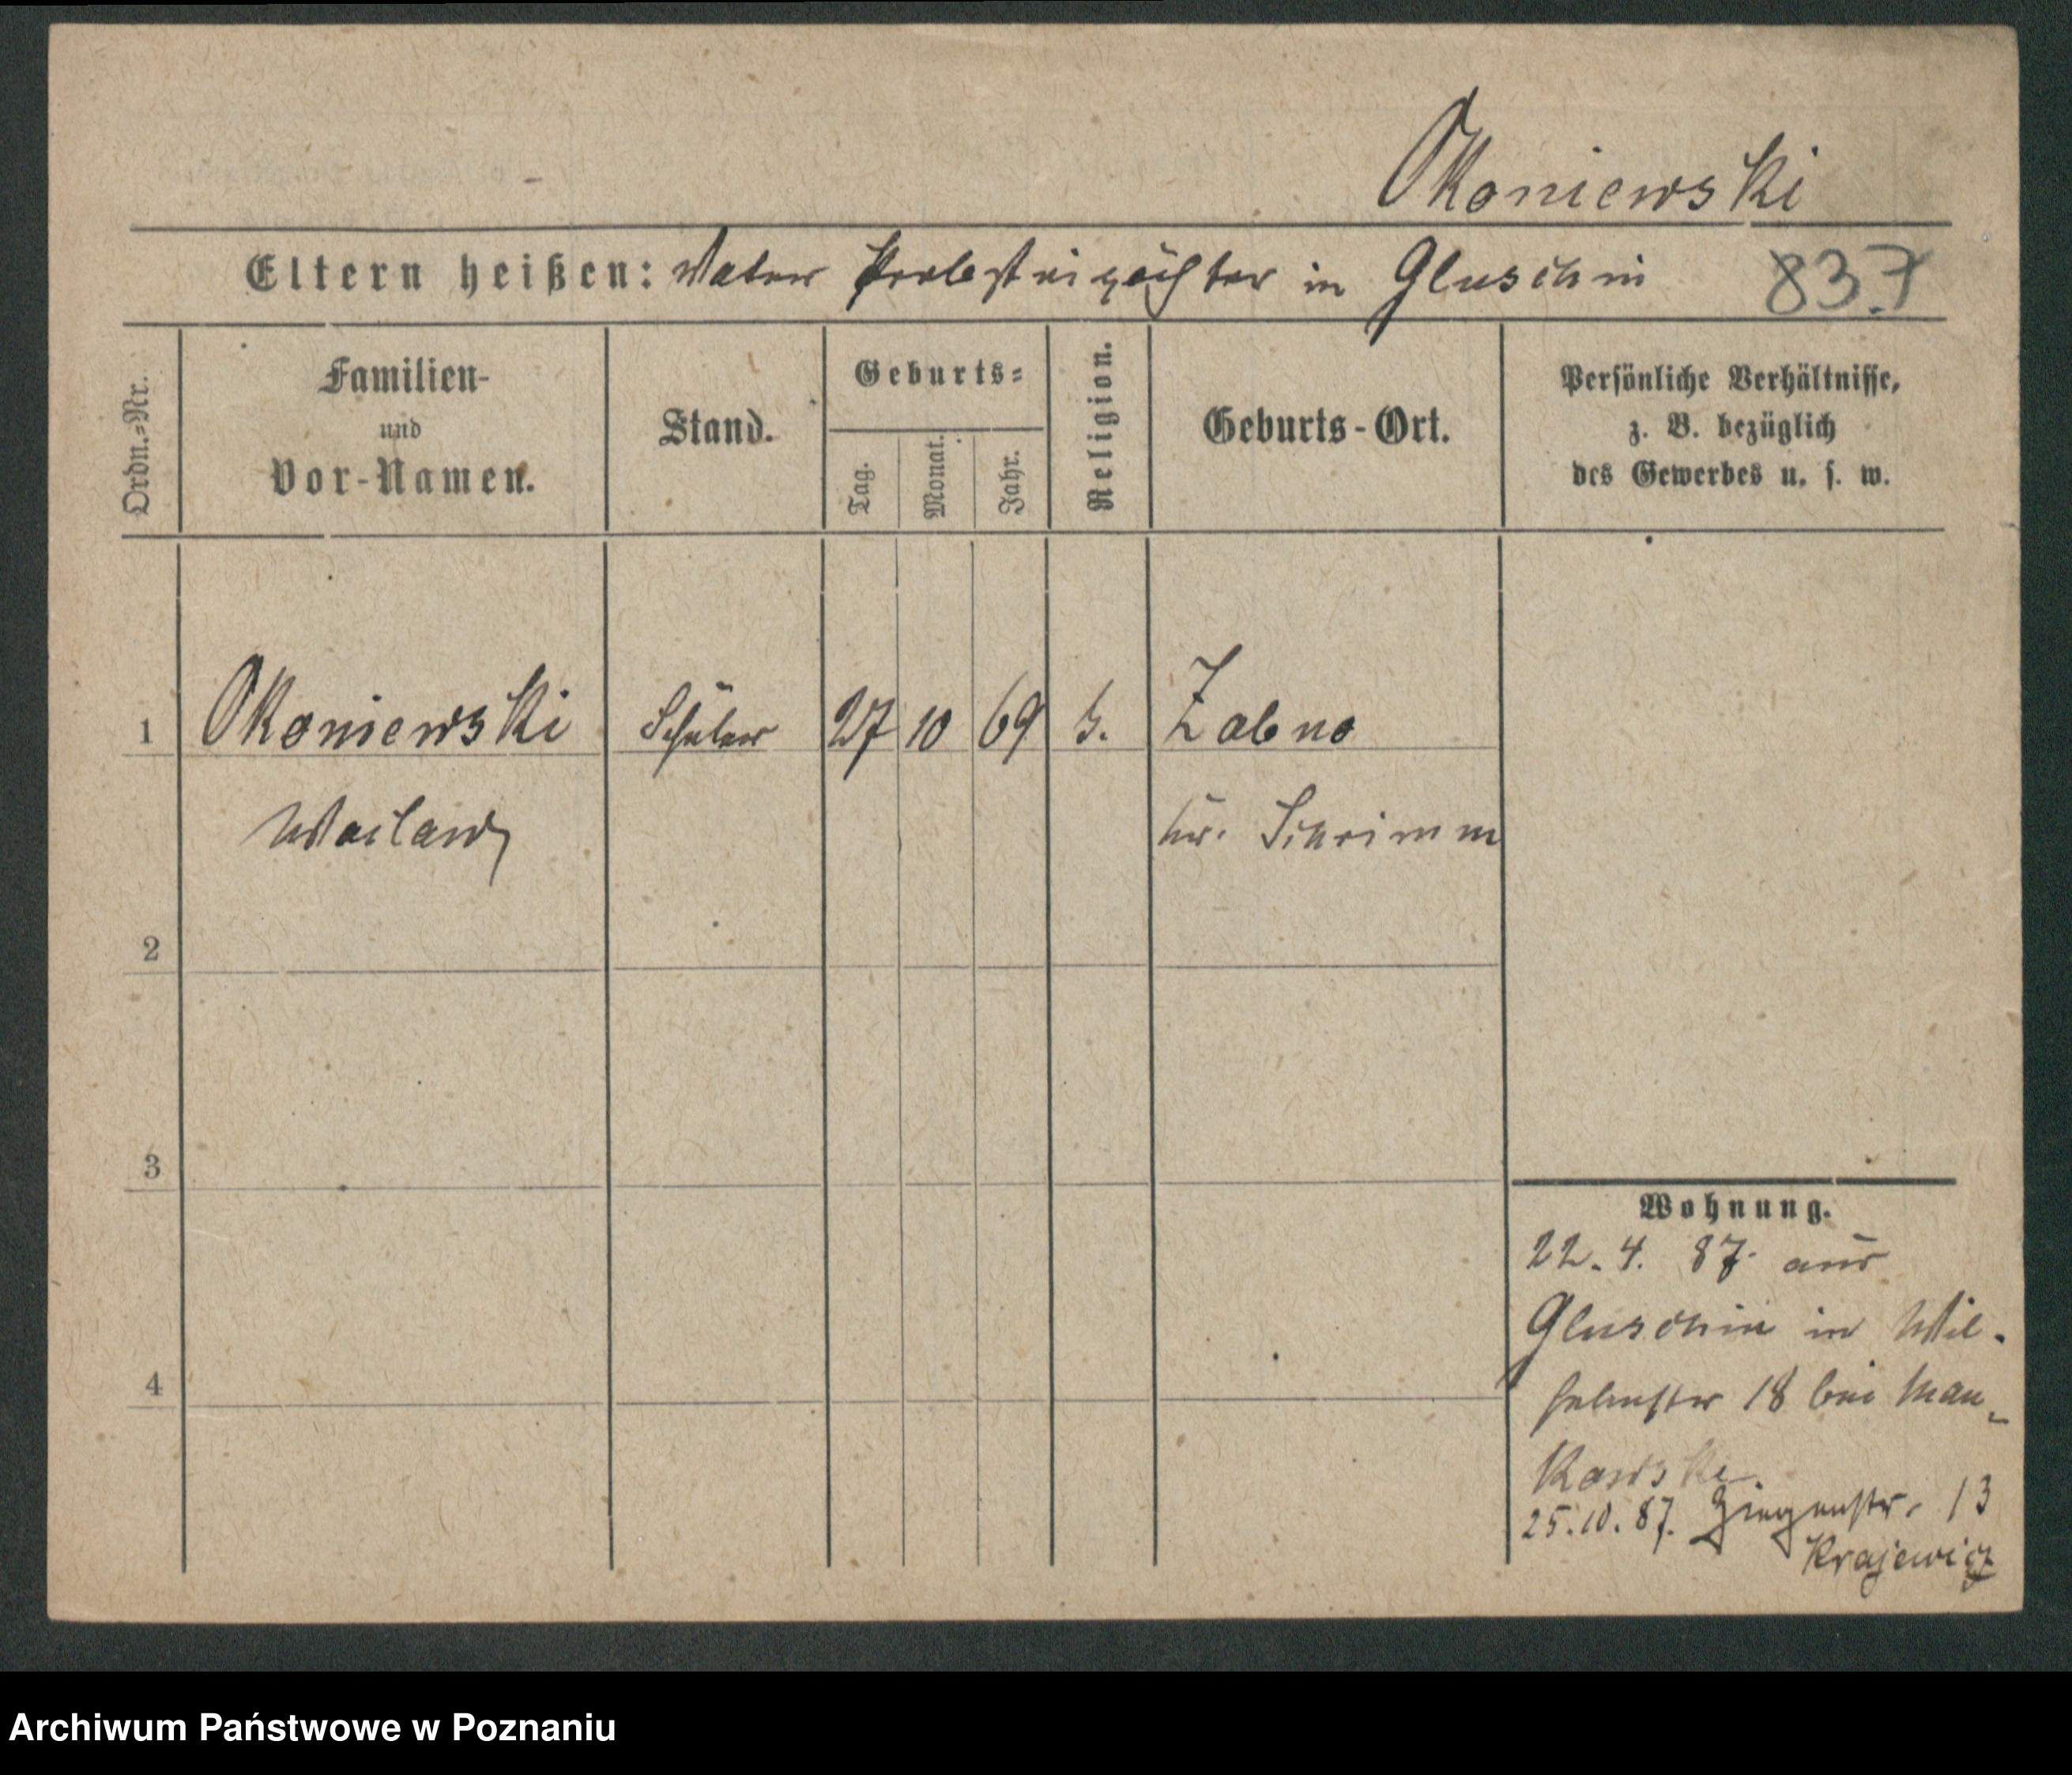 Okoniewski
Eltern heißen: Vater Probsteipächter in Gluschin 837
Ordn.=Nr.
Familien-
und
Vor-Namen.
Stand.
Geburts=
Tag.
Monat.
Jahr.
Religion.
Geburts-Ort.
Persönliche Verhältnisse,
z. B. bezüglich
des Gewerbes u. s. w.
1 Okoniewski Schüler 27 10 69 Zabno
Waclaw Kr. Schrimm
2
3
4
Wohnung.
22. 4. 87. aus
Gluschin in Wil-
helmstr 18 bei Man-
kowski.
25.10.87. Ziegenstr. 13
Krajewicz
Archiwum Państwowe w Poznaniu